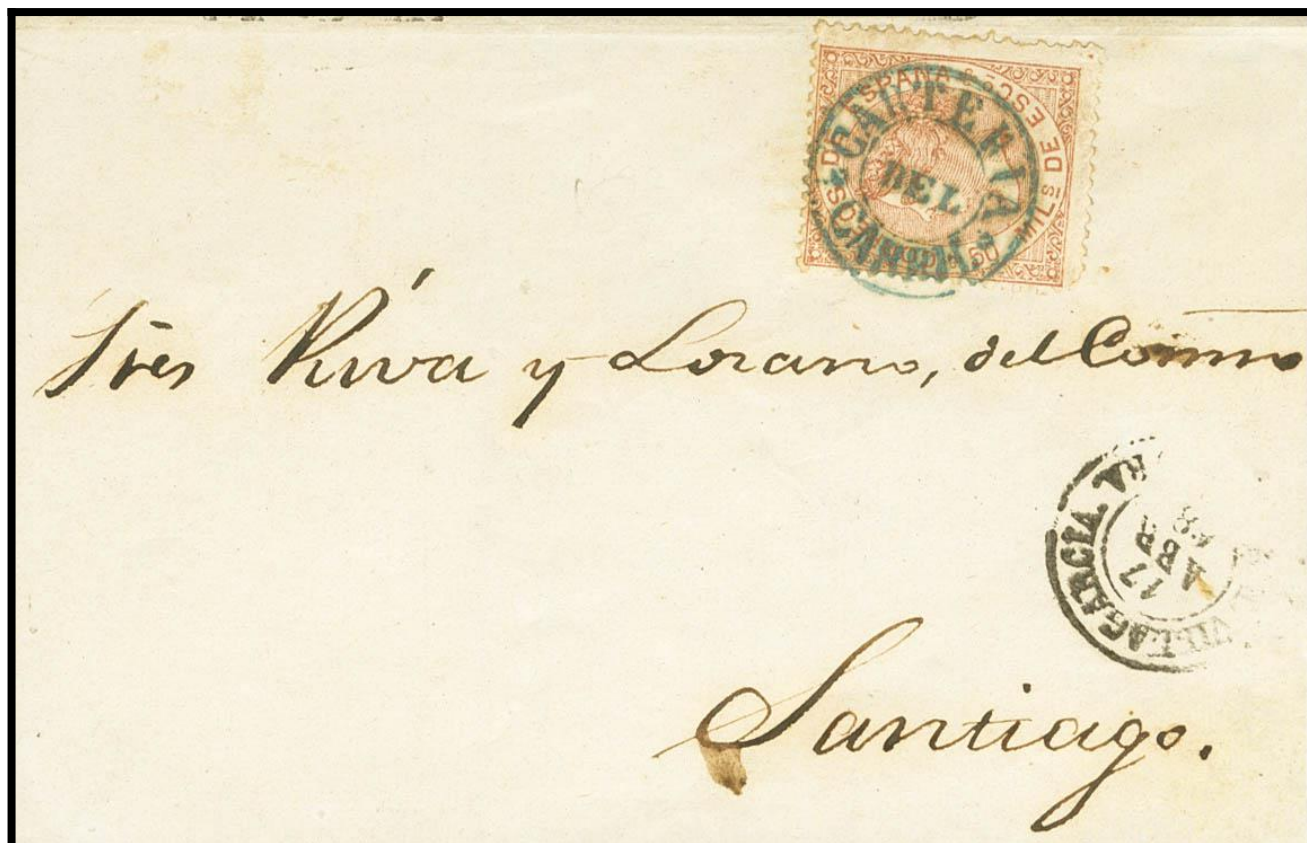 CORREOS DE ESPAÑA 50 MIL.s DE ESCO
CARTERIA
DEL
CARRIL
Sres Riva y Lozano, del Comro
VILLAGARCIA.
17
ABR
68
Santiago.